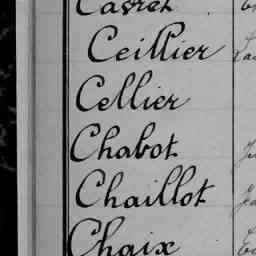 Castet
Ceillier
Cellier
Chabot
Chaillot
Chaix